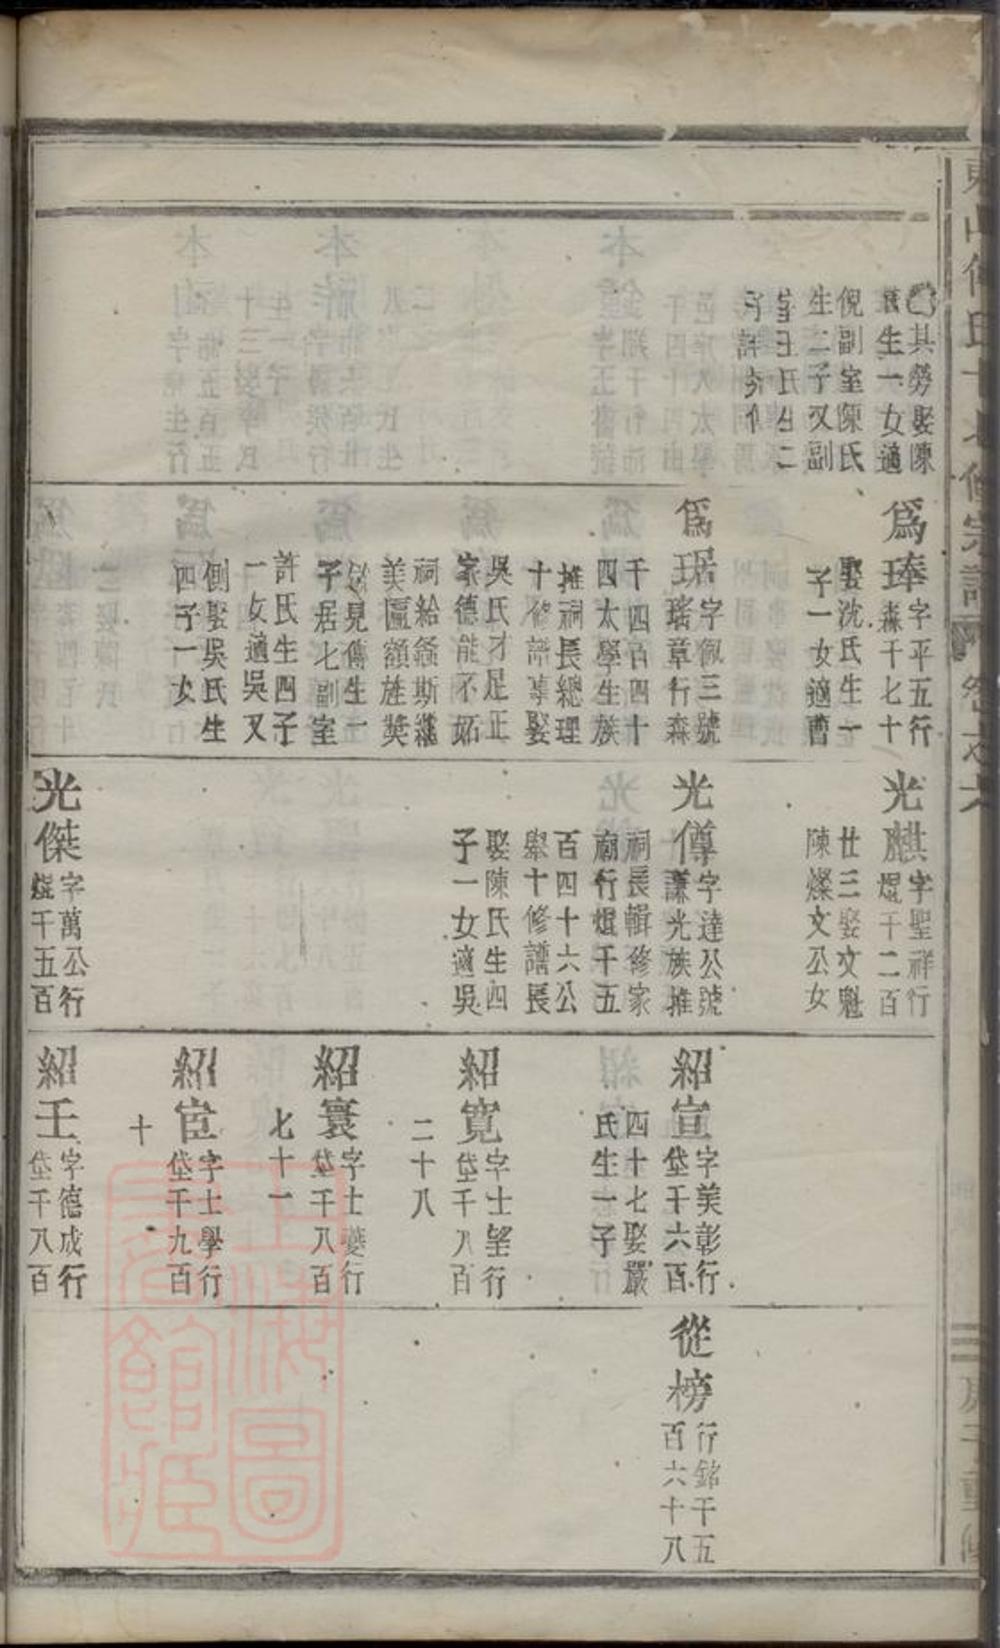 其勞娶陳
生一女適
倪副室陳氏
生二子又副
室王氏生二
子詳
爲琫
字平五行
森千七十
娶沈氏生一
子一女適曹
爲琚
字佩三號
瑤章行森
千四百四十
四太學生族
推祠長總理
十修譜事娶
吳氏才足正
家德能不妬
祠給螽斯
美匾額旌獎
見傳生一
子居七副室
許氏生四子
一女適吳又
側娶吳氏生
四子一女
光麒
字聖祥行
焜千二百
廿三娶文魁
陳燦文公女
光僔
字達公號
謙光族推
祠長輯修家
廟行焜千五
百四十六公
舉十修譜長
娶陳氏生四
子一女適吳
光傑
字萬公行
焜千五百
紹宣
字美彰行
垡千六百
四十七娶嚴
氏生一子
紹寛
字士望行
垡千八百
二十八
紹寰
字士夔行
垡千八百
七十一
紹宦
字士學行
垡千九百
十
紹王
字德成行
垡千八百
從榜
行銘千五
百六十八
上海圖
書館藏